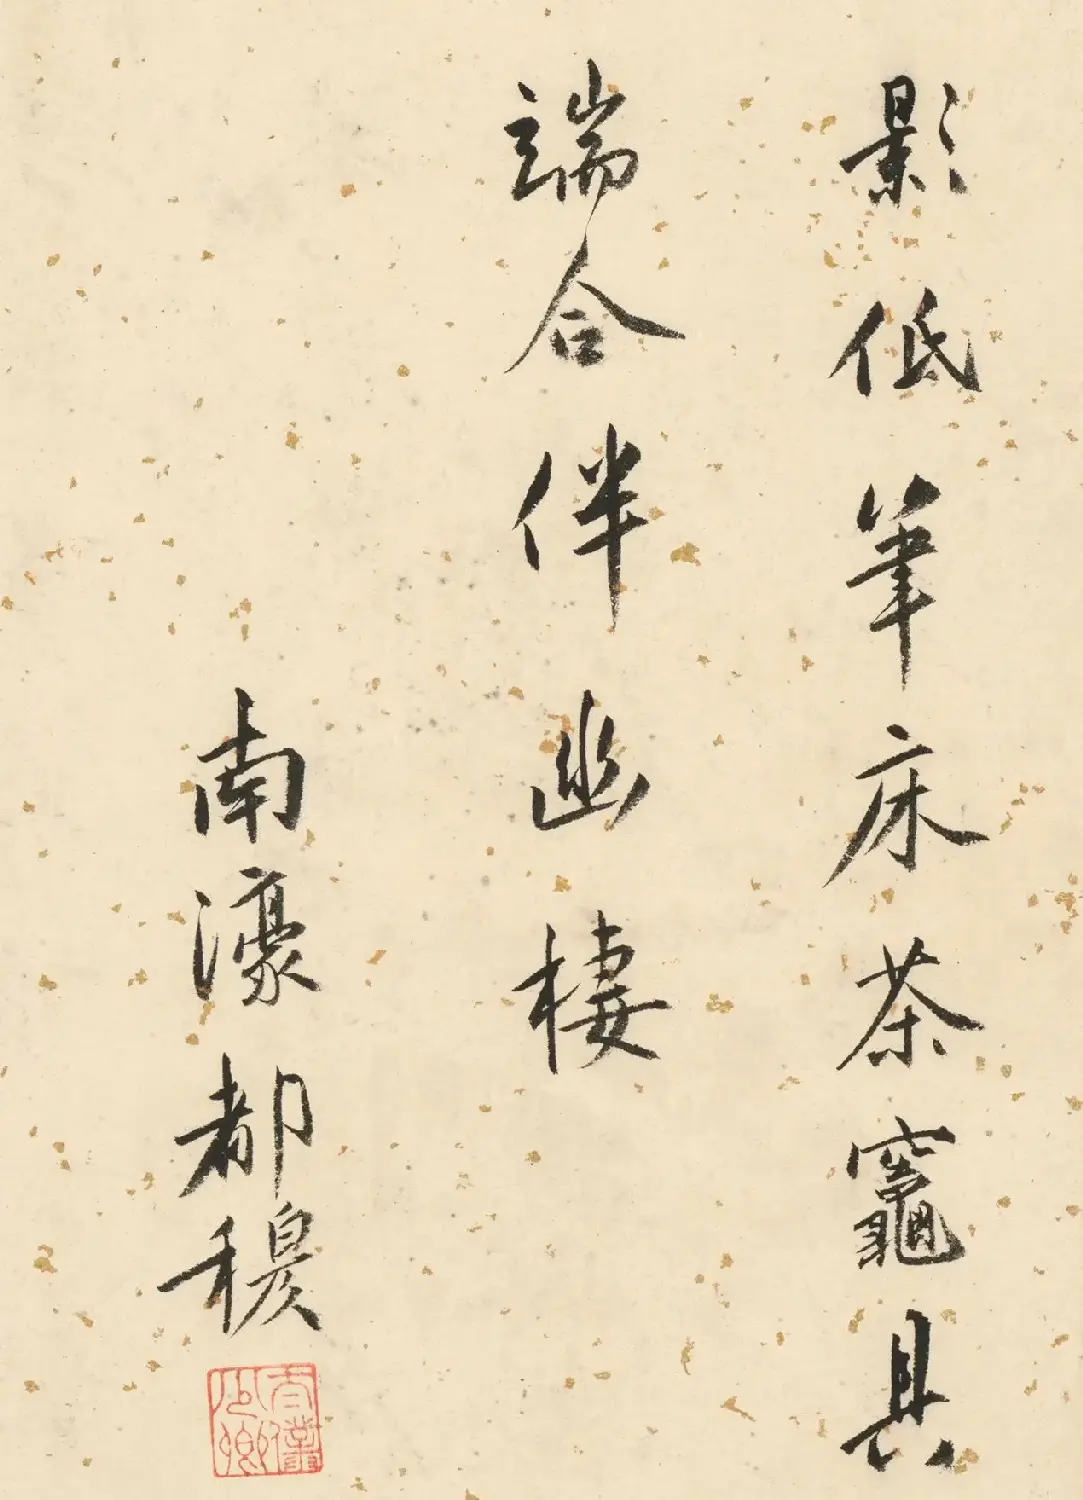 影低筆床茶竈具
端合伴幽棲
南濠都穆
太僕少卿